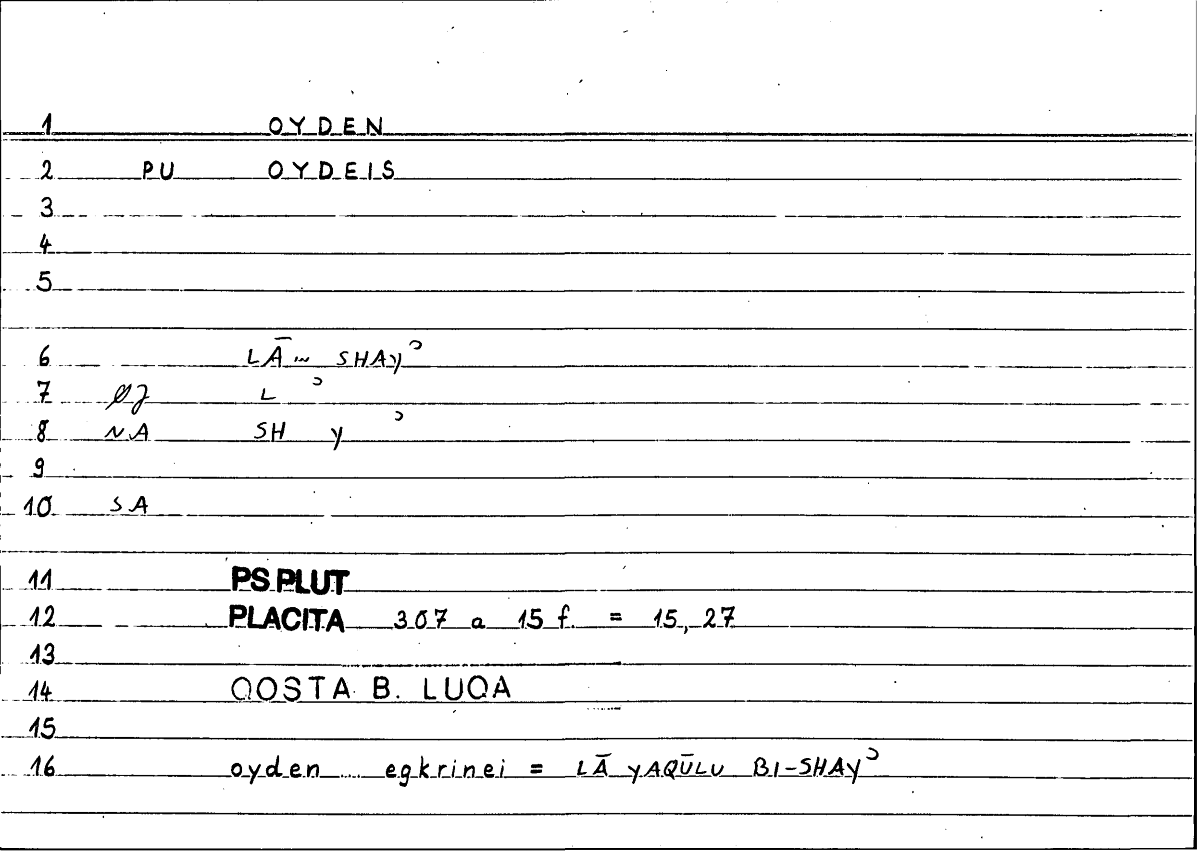 1 OYDEN
2 PU OYDEIS
3
4
5
6 LĀ ... SHAYʾ
7 ØJ L ʾ
8 NA SH Y ʾ
9
10 SA
11 PS.PLUT
12 PLACITA 307 a 15 f. = 15, 27
13
14 QOSTA B. LUQA
15
16 oyden ... egkrinei = LĀ YAQŪLU BI-SHAYʾ